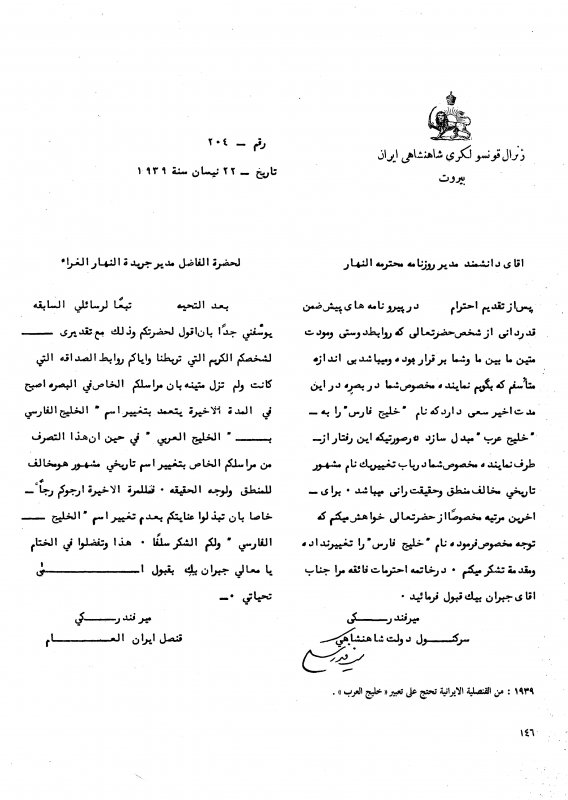 ژنرال قونسولگری شاهنشاهی ایران
بیروت
رقم – ٢٠٤
تاریخ – ٢٢ نیسان سنة ١٩٣٩
اقای دانشمند مدیر روزنامه محترمه النهار
پس از تقدیم احترام در پیرو نامه های پیش ضمن
قدردانی از شخص حضرتعالی که روابط دوستی ومودت
متین ما بین ما وشما بر قرار بوده ومیباشد بی اندازه
متأسفم که بگویم نماینده مخصوص شما در بصره در این
مدت اخیر سعی دارد که نام "خلیج فارس" را به –
"خلیج عرب" مبدل سازد در صورتیکه این رفتار از –
طرف نماینده مخصوص شما در باب تغییر یک نام مشهور
تاریخی مخالف منطق وحقیقت رانی میباشد ٠ برای –
اخرین مرتبه مخصوصًا از حضرتعالی خواهش میکنم که
توجه مخصوص فرموده نام "خلیج فارس" را تغییر نداده
ومقدمة تشکر میکنم ٠ در خاتمه احترمات فائقه مرا جناب
اقای جبران بیك قبول فرمائید ٠
میرفندرسکی
سرکنسول دولت شاهنشاهی
لحضرة الفاضل مدير جريدة النهار الغراء
بعد التحيه تبعًا لرسائلي السابقه
يوسفني جدًا بان اقول لحضرتكم وذلك مع تقديرى –
لشخصكم الكريم التي تربطنا واياكم روابط الصداقه التي
كانت ولم تزل متينه بان مراسلكم الخاص في البصره اصبح
في المدة الاخيرة يتعمد بتغيير اسم "الخليج الفارسي
بـ – "الخليج العربي" في حين ان هذا التصرف
من مراسلكم الخاص بتغيير اسم تاريخي مشهور هو مخالف
للمنطق ولوجه الحقيقه ٠ فللمرة الاخيرة ارجوكم رجاءً –
خاصا بان تبذلوا عنايتكم بعدم تغيير اسم "الخليج –
الفارسي" ولكم الشكر سلفًا ٠ هذا وتفضلوا في الختام
يا معالي جبران بيك بقبول اسنى
تحياتي ٠–
ميرفندرسكي
قنصل ايران العام
١٩٣٩ : من القنصلية الايرانية تحتج على تعبير « خليج العرب » .
١٤٦